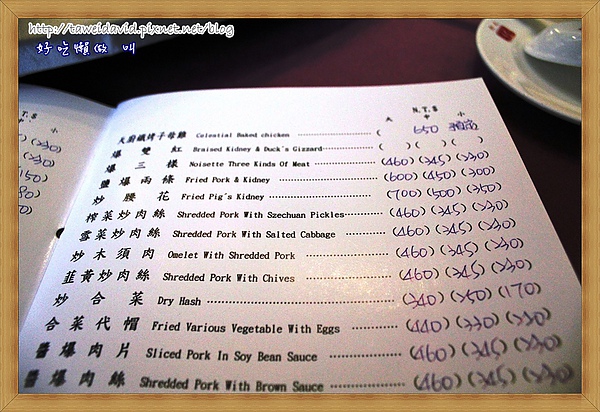 http://taweidavid.pixnet.net/blog
好吃懶做 叫
N.T.$
大 中 小
天廚鐵烤子母雞 Celestial Baked chicken ( 650 預訂
爆雙紅 Braised Kidney & Duck's Gizzard ( ) ( ) ( )
爆三樣 Noisette Three Kinds Of Meat (460) (345) (230)
鹽爆兩條 Fried Pork & Kidney (600) (450) (300)
炒腰花 Fried Pig's Kidney (700) (500) (350)
榨菜炒肉絲 Shredded Pork With Szechuan Pickles (460) (345) (230)
雪菜炒肉絲 Shredded Pork With Salted Cabbage (460) (345) (230)
炒木須肉 Omelet With Shredded Pork (460) (345) (230)
韮黃炒肉絲 Shredded Pork With Chives (460) (345) (230)
炒合菜 Dry Hash (340) (250) (170)
合菜代帽 Fried Various Vegetable With Eggs (440) (330) (220)
醬爆肉片 Sliced Pork In Soy Bean Sauce (460) (345) (230)
醬爆肉絲 Shredded Pork With Brown Sauce (460) (345) (230)